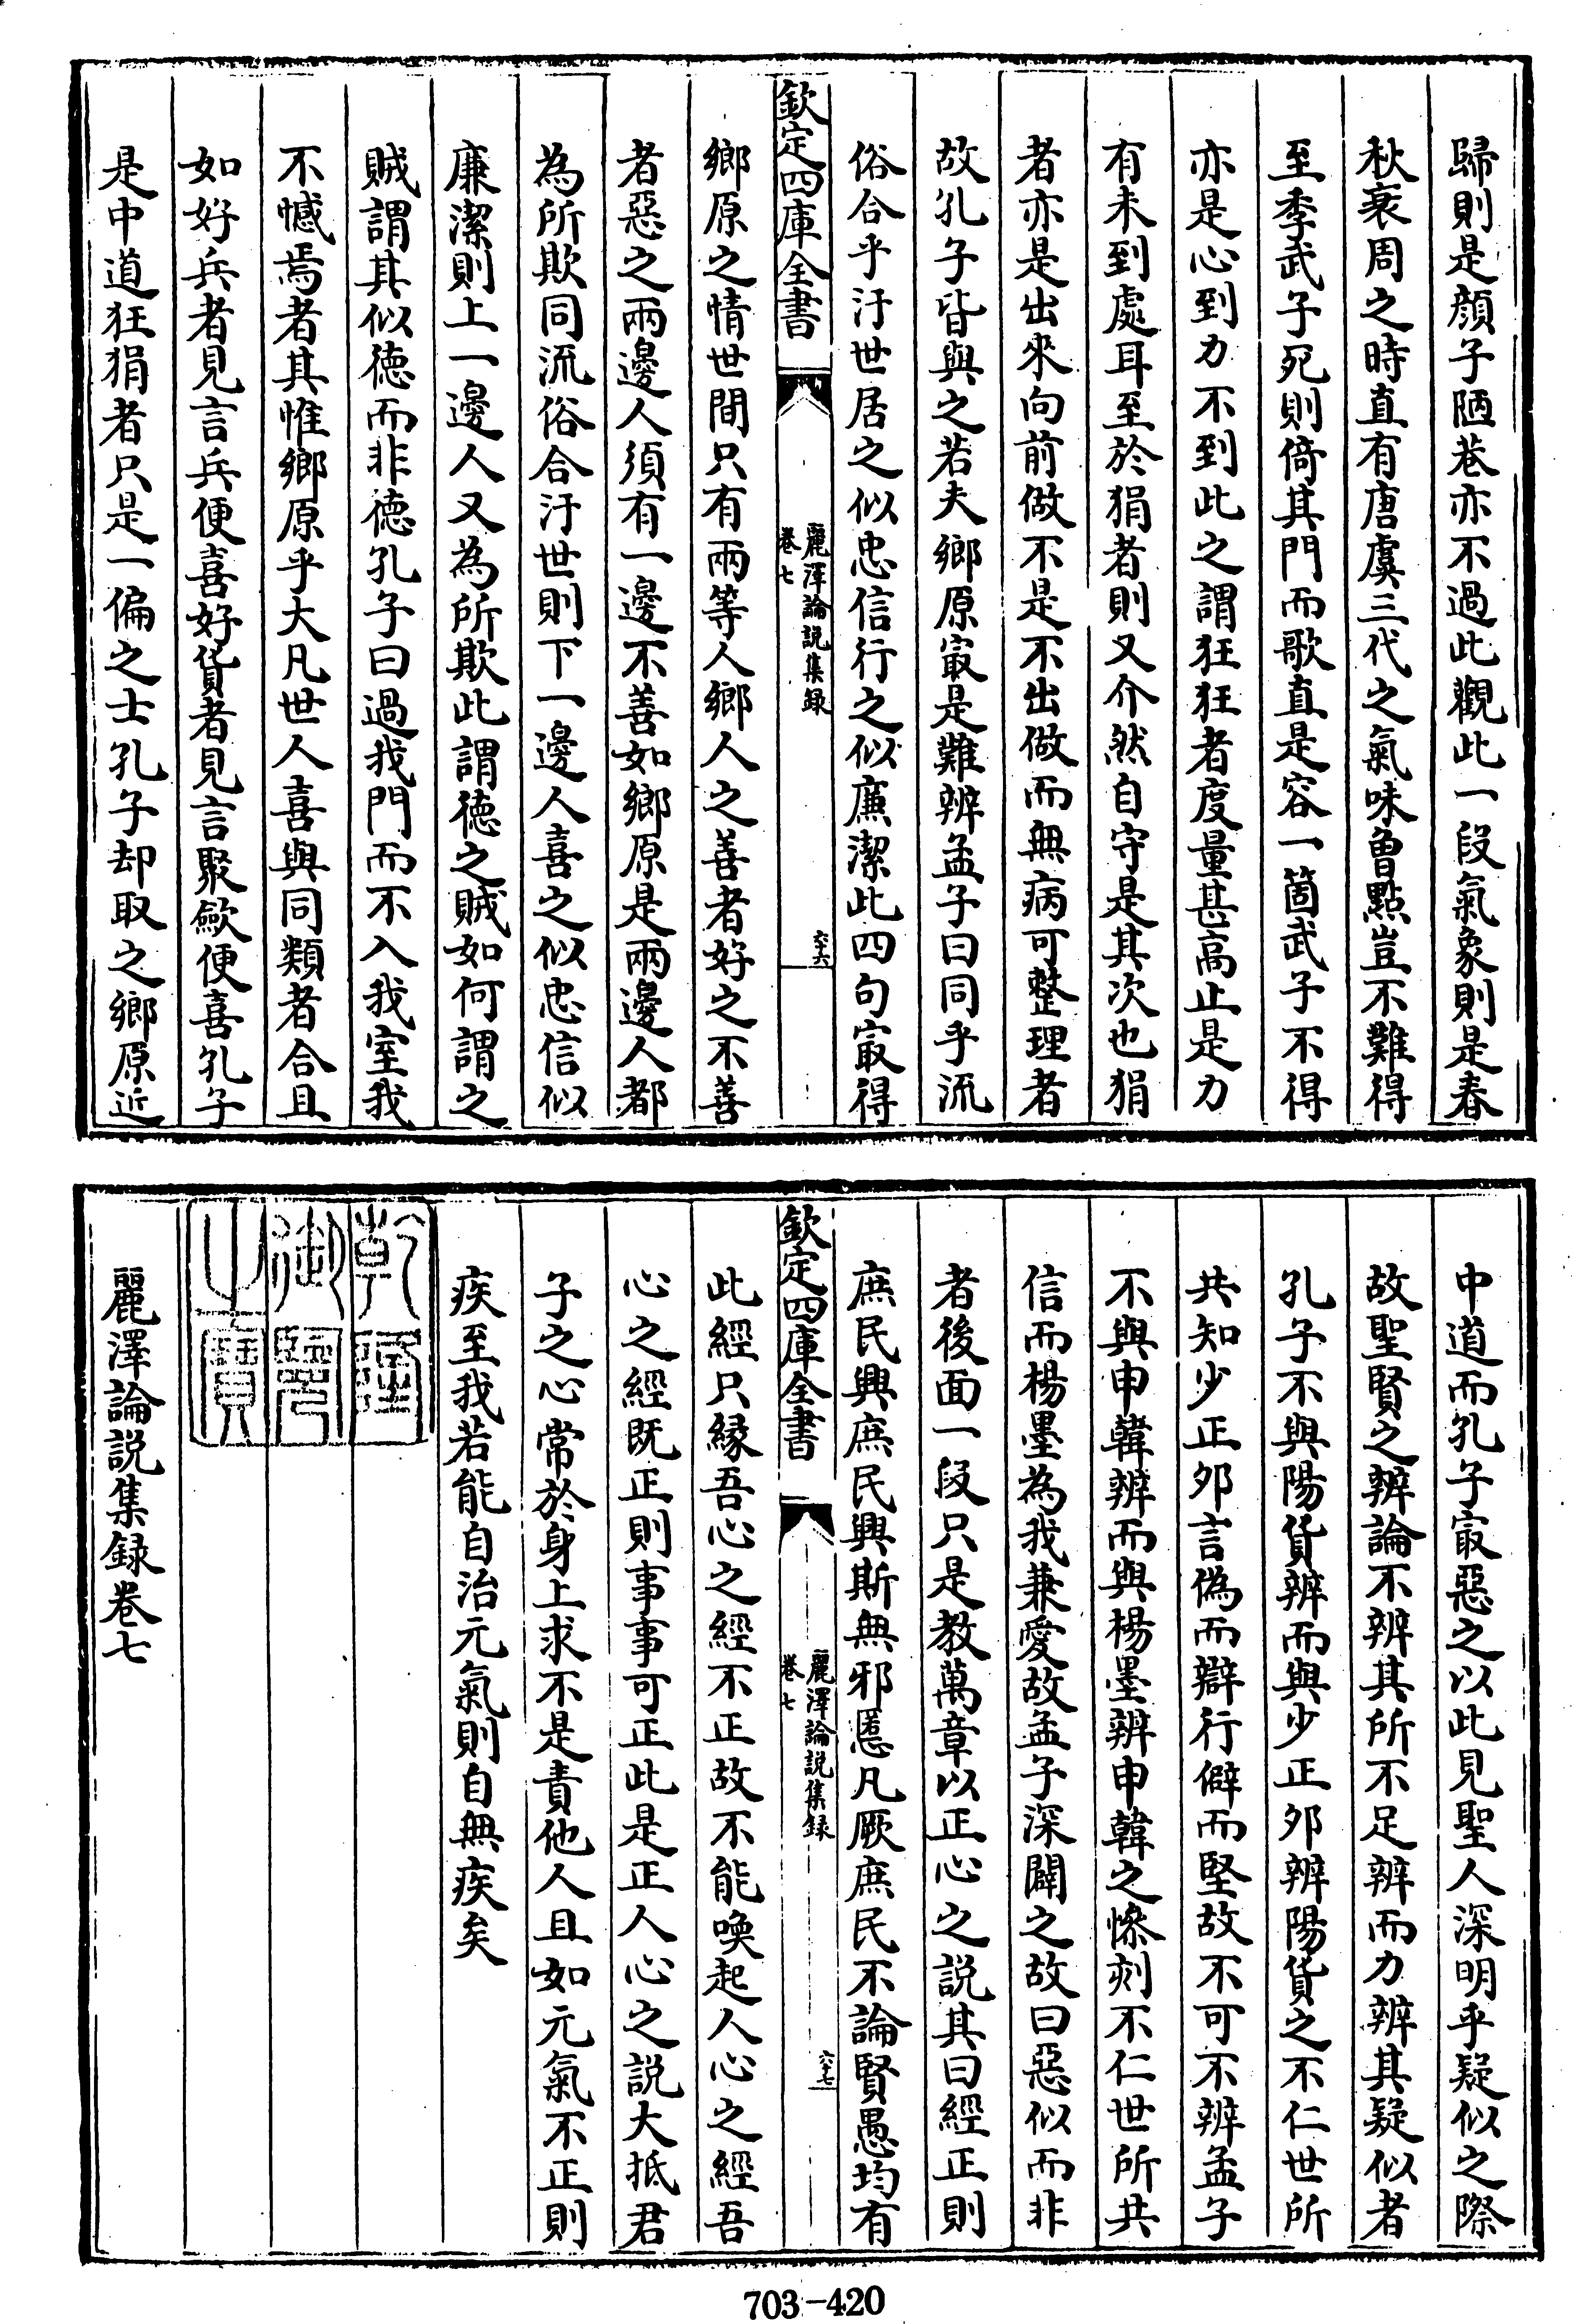 歸則是顔子陋巷亦不過此觀此一段氣象則是春
秋衰周之時直有唐虞三代之氣味魯㸃豈不難得
至季武子死則倚其門而歌直是容一箇武子不得
亦是心到力不到此之謂狂狂者度量甚高止是力
有未到處耳至於狷者則又介然自守是其次也狷
者亦是出來向前做不是不出做而無病可整理者
故孔子皆與之若夫鄉原㝡是難辨孟子曰同乎流
俗合乎汙世居之似忠信行之似亷潔此四句㝡得
欽定四庫全書
麗澤論説集録
卷七
六十六
鄉原之情世間只有兩等人鄉人之善者好之不善
者惡之兩邊人須有一邊不善如鄉原是兩邊人都
為所欺同流俗合汙世則下一邊人喜之似忠信似
廉潔則上一邊人又為所欺此謂德之賊如何謂之
賊謂其似德而非德孔子曰過我門而不入我室我
不憾焉者其惟鄉原乎大凡世人喜與同類者合且
如好兵者見言兵便喜好貨者見言聚歛便喜孔子
是中道狂狷者只是一偏之士孔子却取之鄉原近
中道而孔子㝡惡之以此見聖人深明乎疑似之際
故聖賢之辨論不辨其所不足辨而力辨其疑似者
孔子不與陽貨辨而與少正夘辨陽貨之不仁世所
共知少正夘言偽而辯行僻而堅故不可不辨孟子
不與申韓辨而與楊墨辨申韓之慘刻不仁世所共
信而楊墨為我兼愛故孟子深闢之故曰惡似而非
者後面一段只是教萬章以正心之説其曰經正則
庶民興庶民興斯無邪慝凡厥庶民不論賢愚均有
欽定四庫全書
麗澤論説集録
卷七
六十七
此經只縁吾心之經不正故不能喚起人心之經吾
心之經既正則事事可正此是正人心之説大抵君
子之心常於身上求不是責他人且如元氣不正則
疾至我若能自治元氣則自無疾矣
乾隆
御覽
之寶
麗澤論説集録卷七
703-420